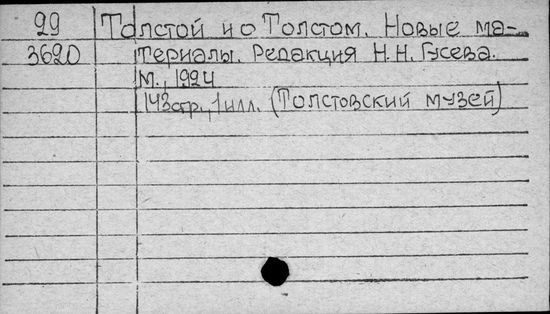 29 Толстой и о Толстом. Новые ма-
3620 териалы. Редакция Н.Н. Гусева.
М., 1924
143 стр., 1 илл. (Толстовский музей)